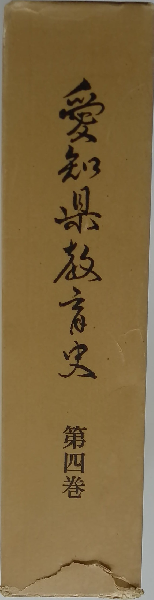 愛知県教育史
第四巻